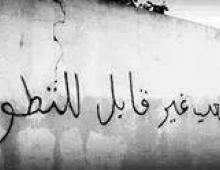 غير قابل للتطو